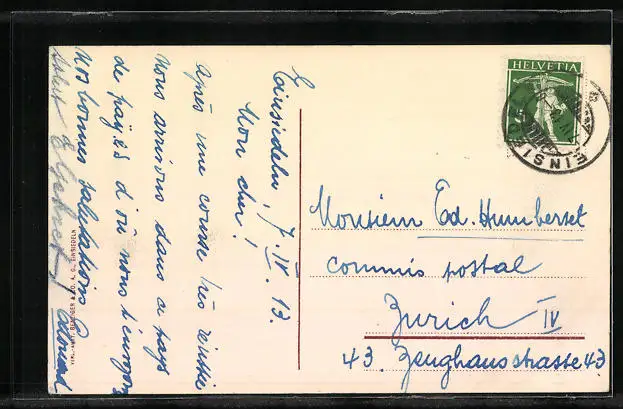 Einsiedeln, 7.IV.13.
Mon cher!
Après une course très réussie
nous arrivons dans ce pays
de d'où nous t'envoyons
nos bonnes salutations
Edouard
HELVETIA
EINSIEDELN
Monsieur Ed. Humberset
commis postal
Zurich IV
43. Zeughausstrasse 43
VERL.-ANST. BENZIGER & CO. A. G., EINSIEDELN